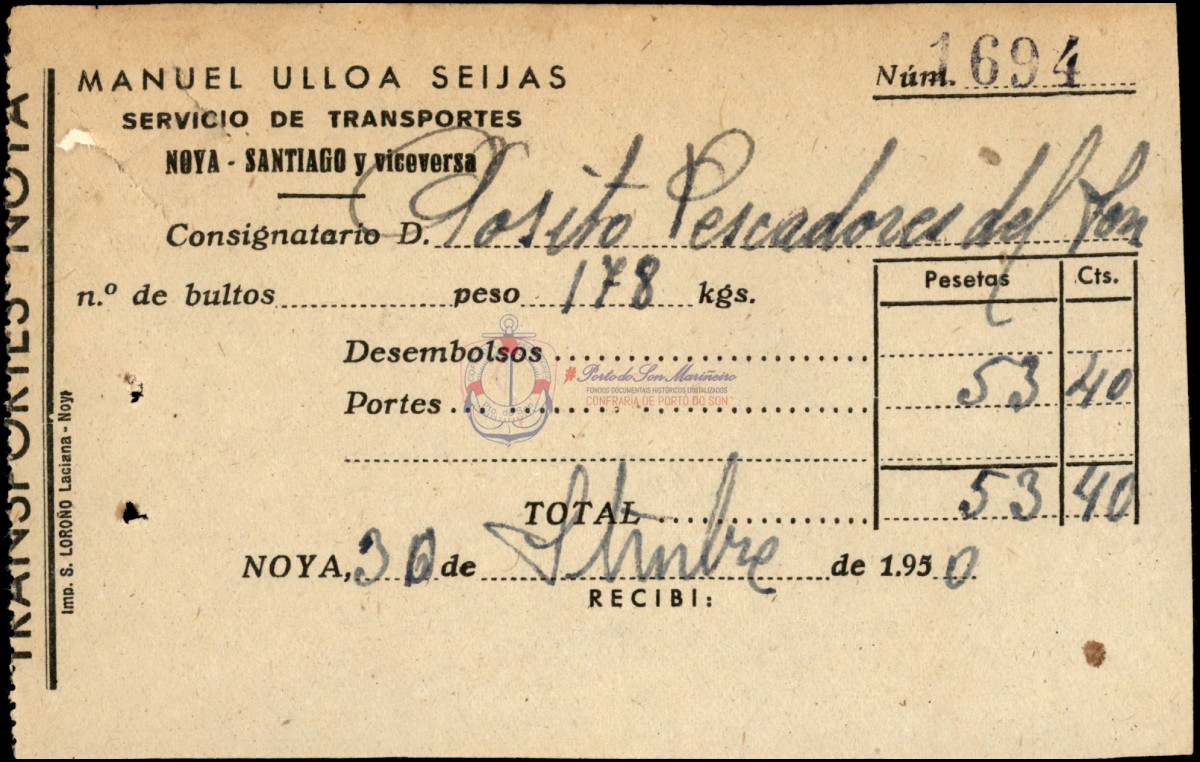 TRANSPORTES NOYA
Imp. S. LOROÑO Laciana - Noya
MANUEL ULLOA SEIJAS
SERVICIO DE TRANSPORTES
NOYA - SANTIAGO y viceversa
Núm. 1694
Consignatario D. Posito Pescadores del Son
n.º de bultos peso 178 kgs.
Pesetas Cts.
Desembolsos
Portes 53 40
TOTAL 53 40
NOYA, 30 de Stmbre de 1.950
RECIBI:
#PortodoSonMariñeiro
FONDOS DOCUMENTAIS HISTÓRICOS DIGITALIZADOS
CONFRARÍA DE PORTO DO SON